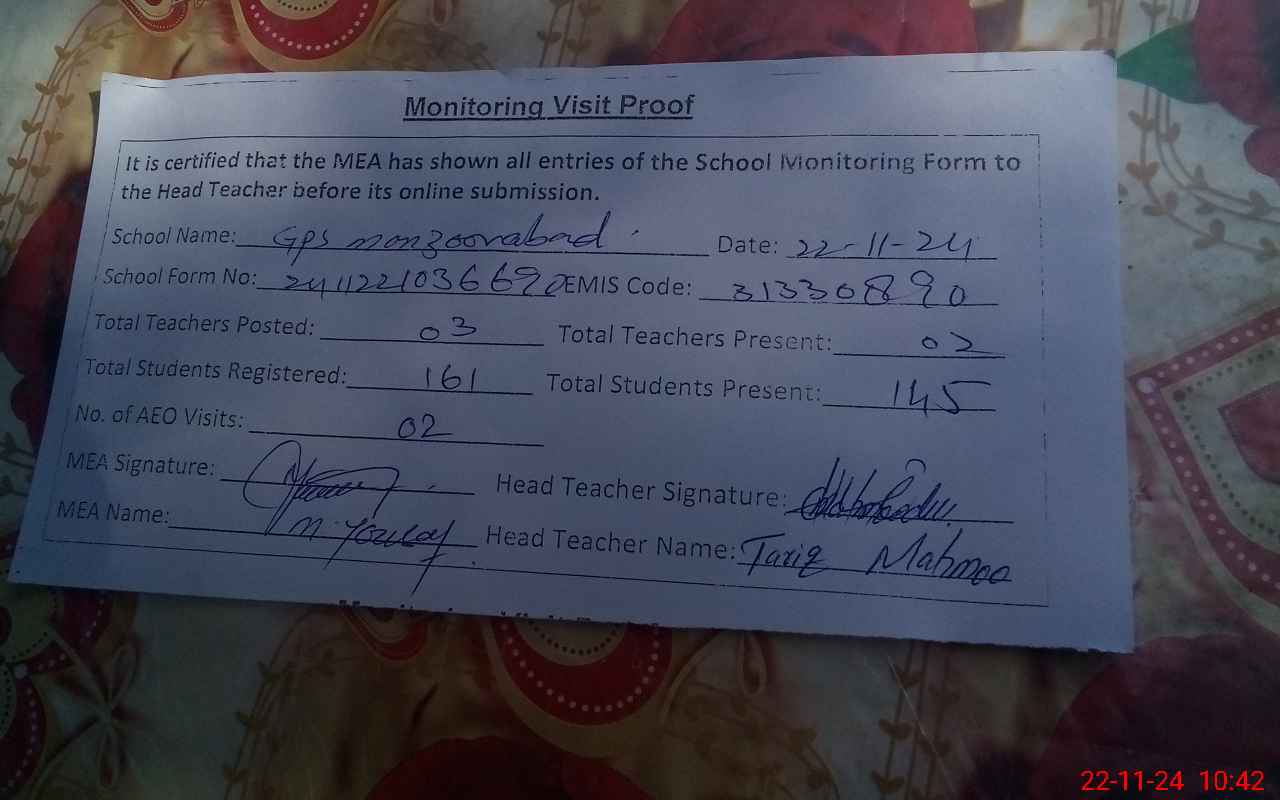 Monitoring Visit Proof
It is certified that the MEA has shown all entries of the School Monitoring Form to
the Head Teacher before its online submission.
School Name: GPS manzoorabad Date: 22-11-24
School Form No: 2411221036690 EMIS Code: 31330890
Total Teachers Posted: 03 Total Teachers Present: 02
Total Students Registered: 161 Total Students Present: 145
No. of AEO Visits: 02
MEA Signature: Head Teacher Signature:
MEA Name: M. Yousaf Head Teacher Name: Tariq Mahmoo
22-11-24 10:42